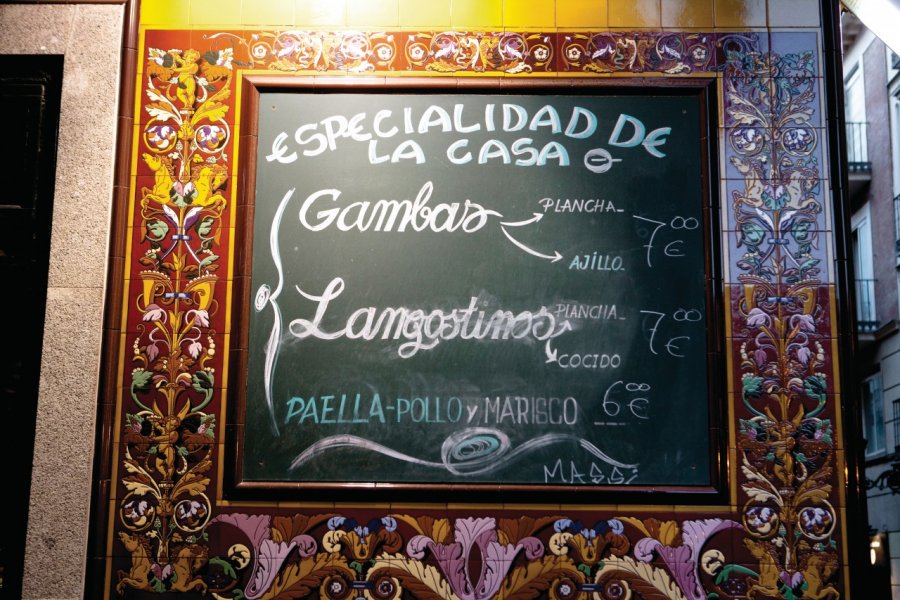 ESPECIALIDAD DE
LA CASA
Gambas PLANCHA 7,00 €
AJILLO
Langostinos PLANCHA 7,00 €
COCIDO
PAELLA-POLLO y MARISCO 6,00 €